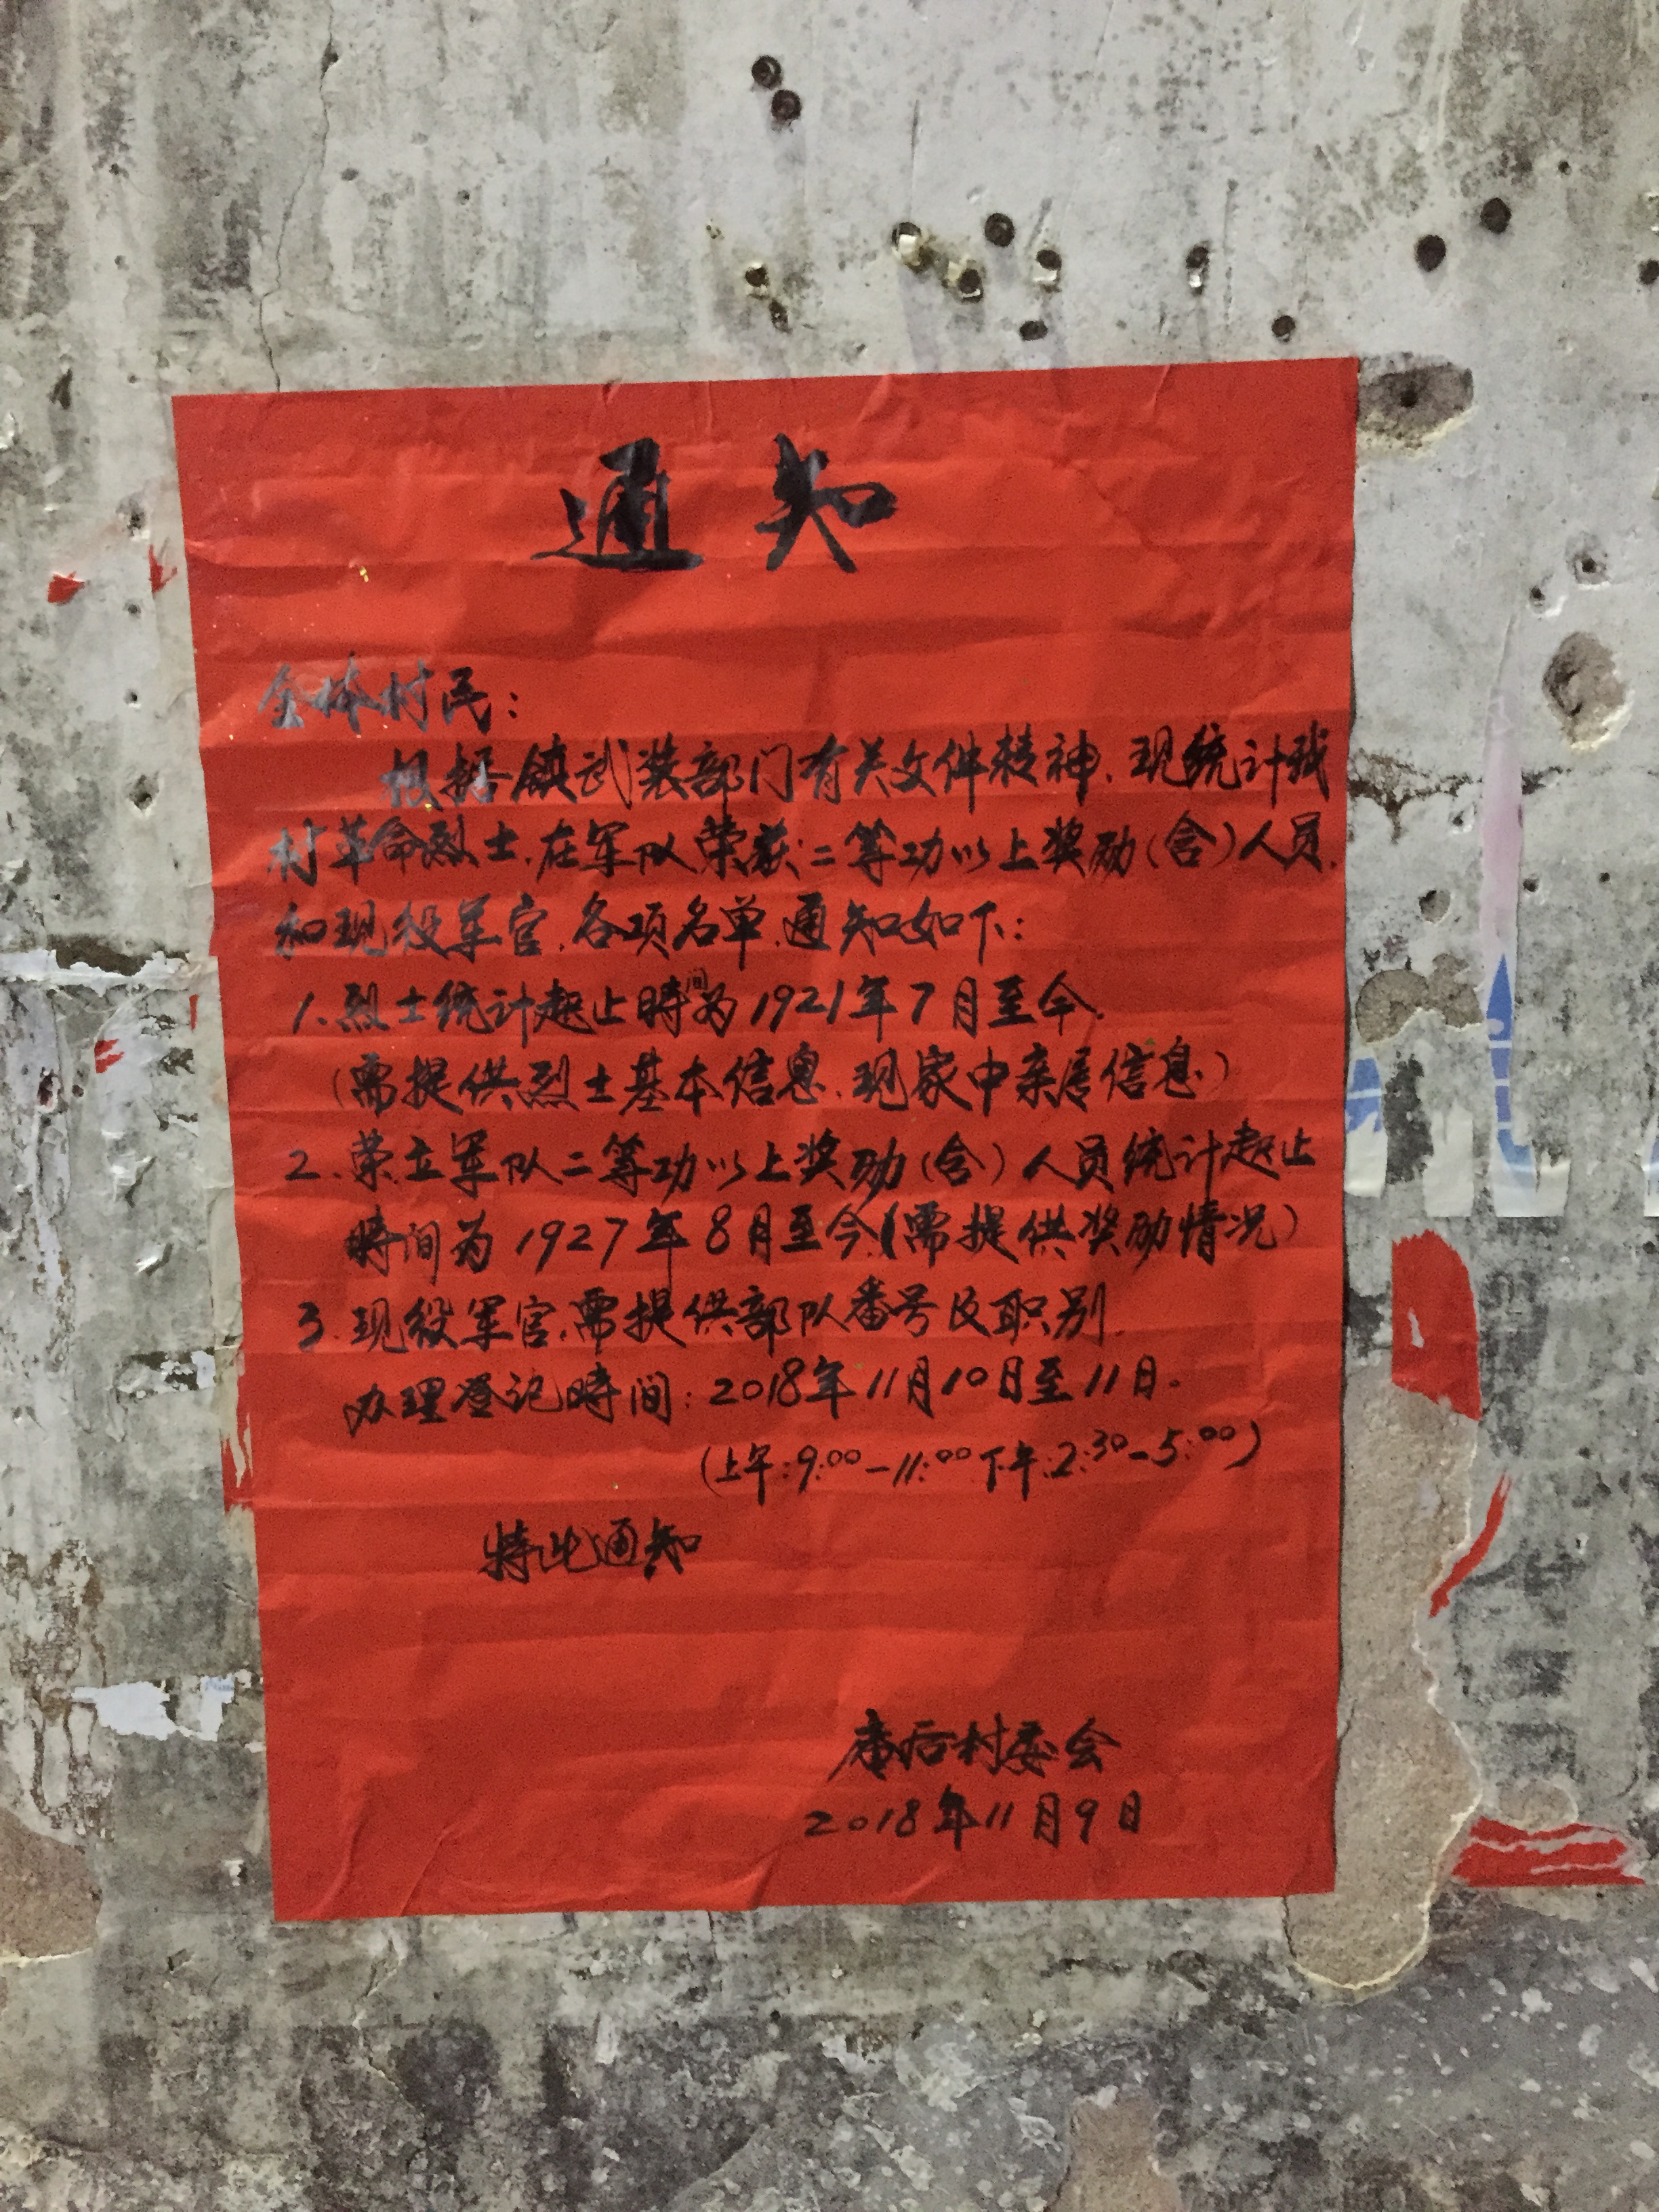 通知
全体村民：
根据镇武装部门有关文件精神，现统计我
村革命烈士，在军队荣获二等功以上奖励（含）人员，
和现役军官，各项名单，通知如下：
1、烈士统计起止時间为1921年7月至今，
（需提供烈士基本信息，现家中亲属信息）
2、荣立军队二等功以上奖励（含）人员统计起止
時间为1927年8月至今（需提供奖励情况）
3、现役军官，需提供部队番号及职别，
办理登记時间：2018年11月10日至11日.
（上午：9:00—11:00下午：2:30—5:00）
特此通知
后村委会
2018年11月9日